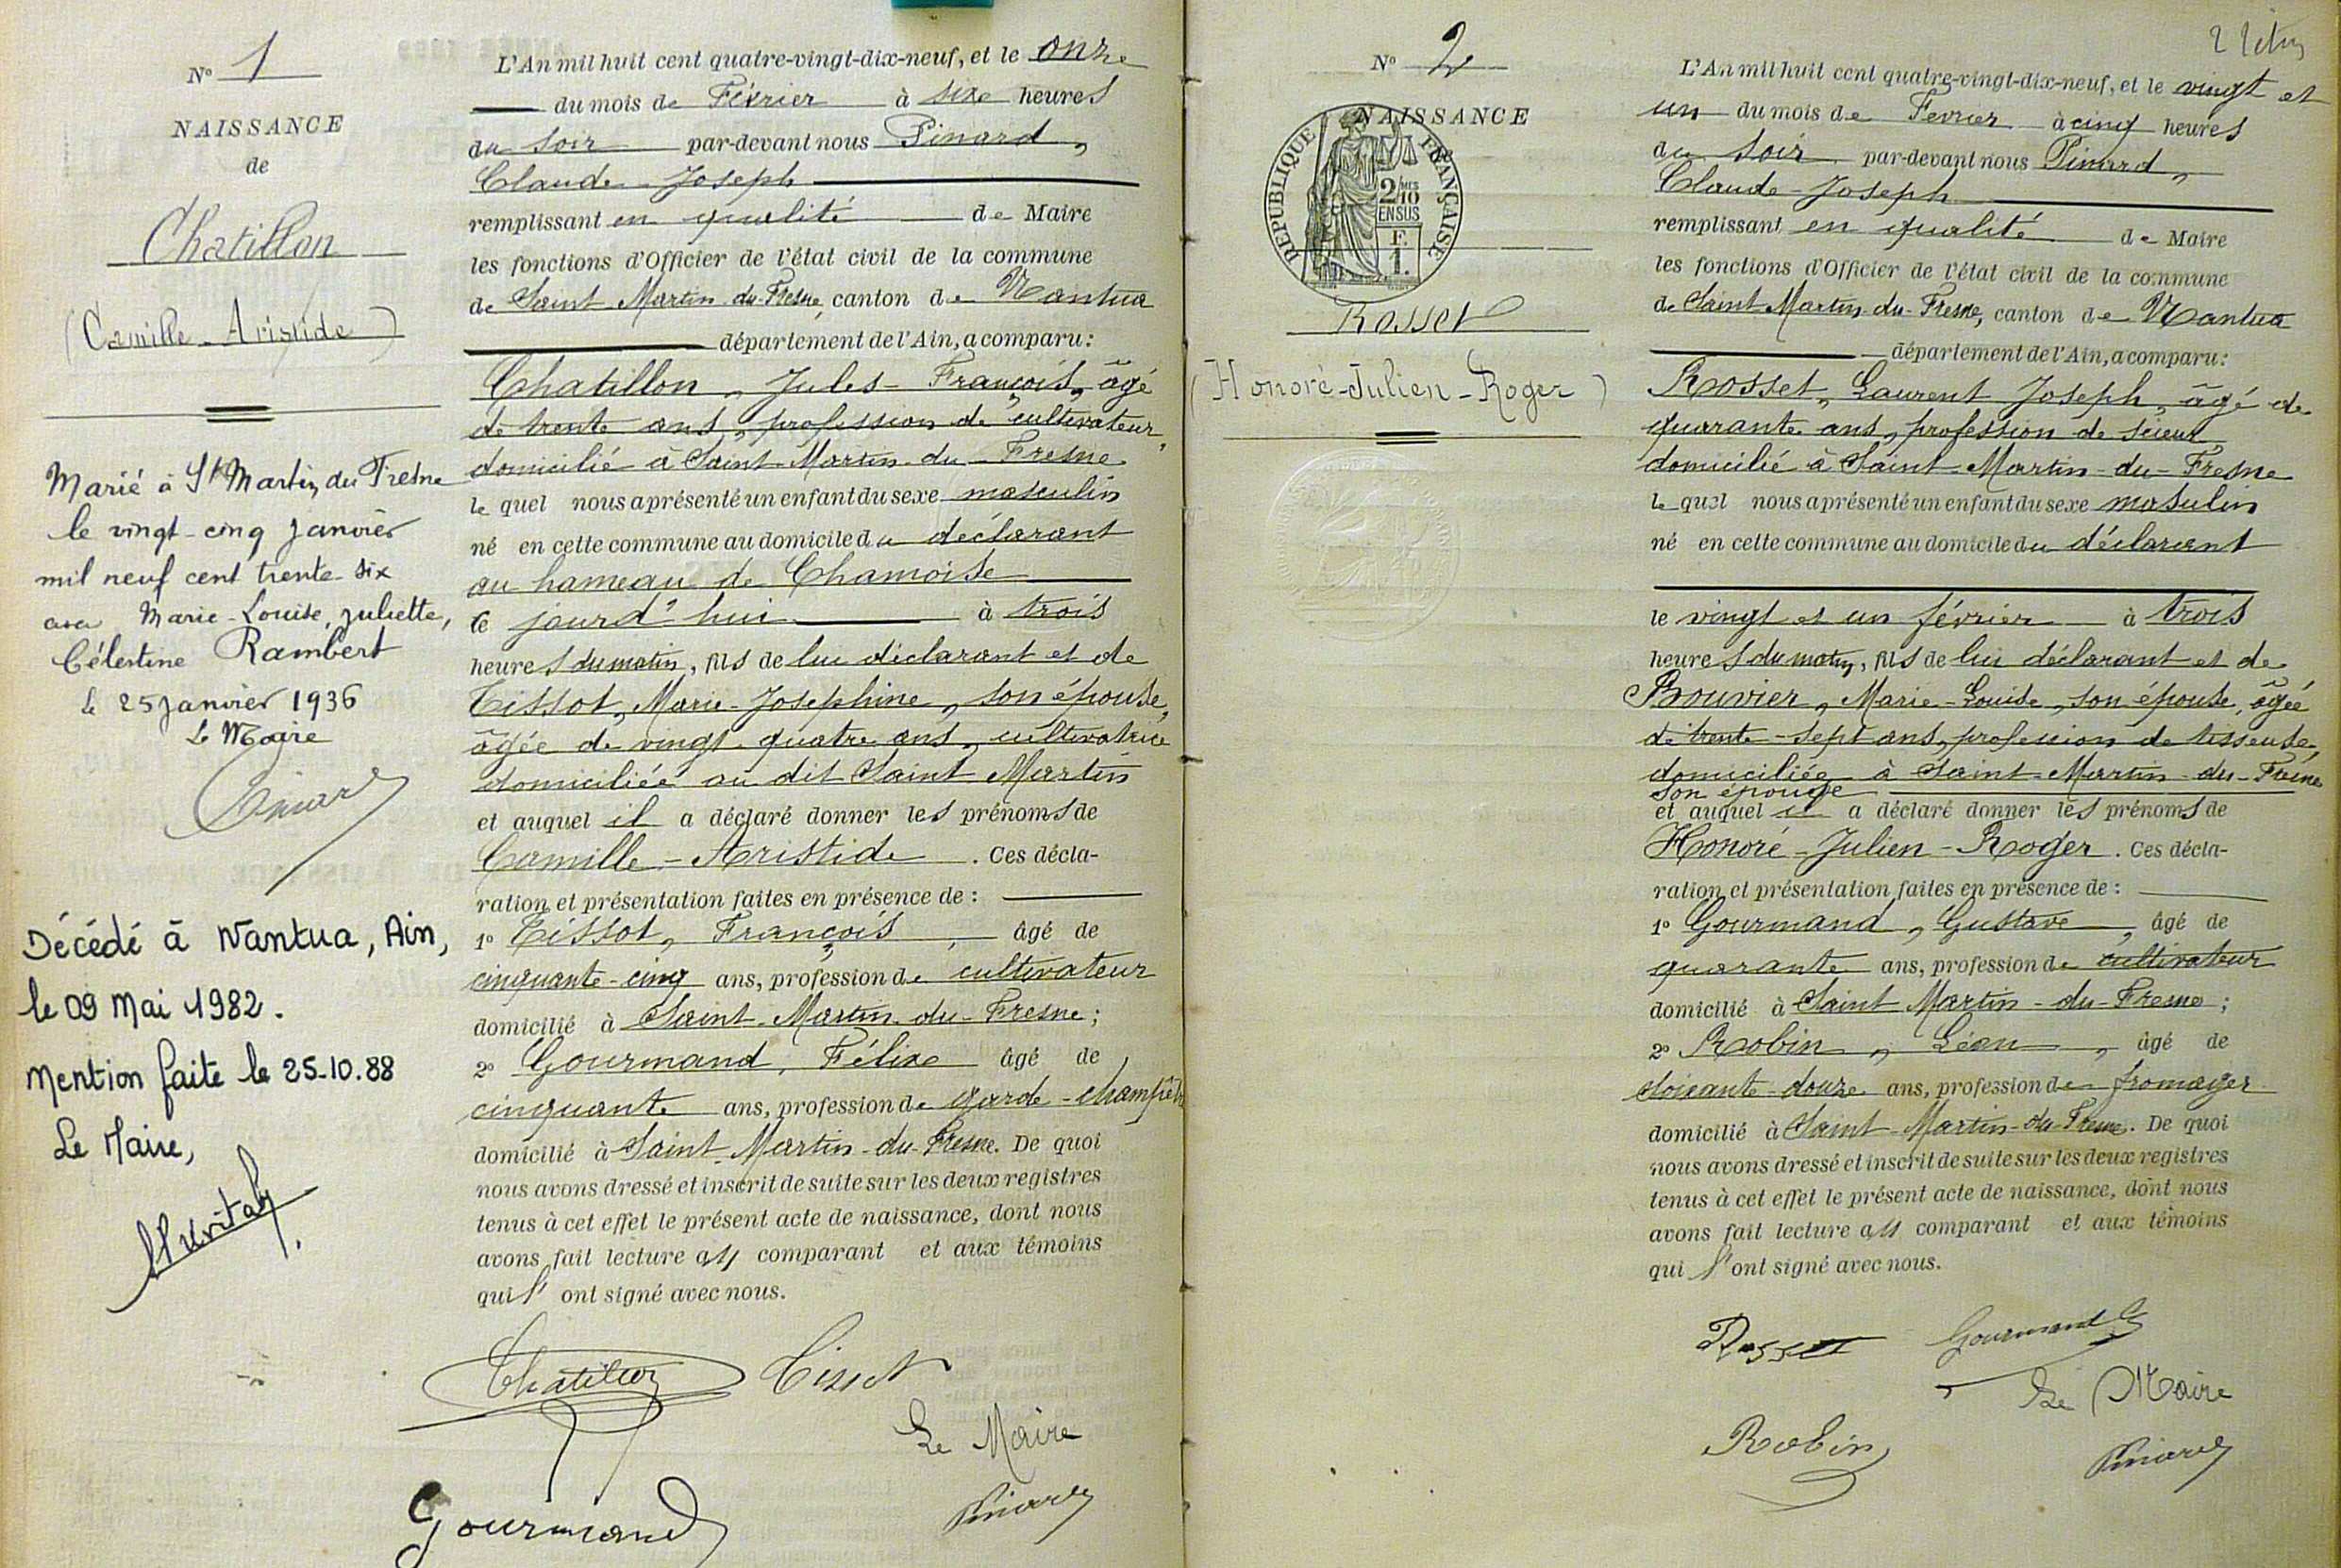 N° 1
NAISSANCE
de
Chatillon
(Camille-Aristide)
Marié à St Martin du Fresne
le vingt-cinq janvier
mil neuf cent trente-six
avec Marie-Louise, Juliette,
Célestine Rambert
le 25 janvier 1936
Le Maire
Décédé à Nantua, Ain,
le 09 Mai 1982.
Mention faite le 25-10.88
Le Maire,
L'An mil huit cent quatre-vingt-dix-neuf, et le onze
du mois de Février à six heures
du soir par-devant nous Pinard,
Claude-Joseph
remplissant en qualité de Maire
les fonctions d'Officier de l'état civil de la commune
de Saint-Martin-du-Fresne, canton de Nantua
département de l'Ain, a comparu:
Chatillon, Jules-François, âgé
de trente ans, profession de cultivateur,
domicilié à Saint-Martin-du-Fresne
le quel nous a présenté un enfant du sexe masculin
né en cette commune au domicile du déclarant
au hameau de Chamoise
ce jourd'hui à trois
heures du matin, fils de lui déclarant et de
Tissot, Marie-Josephine, son épouse,
âgée de vingt-quatre ans, cultivatrice
domiciliée au dit Saint Martin
et auquel il a déclaré donner les prénoms de
Camille-Aristide. Ces décla-
ration et présentation faites en présence de:
1° Tissot, François, âgé de
cinquante-cinq ans, profession de cultivateur
domicilié à Saint-Martin-du-Fresne;
2° Gourmand, Félix âgé de
cinquante ans, profession de garde-champêtre
domicilié à Saint-Martin-du-Fresne. De quoi
nous avons dressé et inscrit de suite sur les deux registres
tenus à cet effet le présent acte de naissance, dont nous
avons fait lecture au comparant et aux témoins
qui l'ont signé avec nous.
Chatillon Tissot
Le Maire
Gourmand Pinard
2
N° 2
NAISSANCE
REPUBLIQUE FRANÇAISE
2/10MES
EN SUS
F.
1.
Rosset
(Honoré-Julien-Roger)
L'An mil huit cent quatre-vingt-dix-neuf, et le vingt et
un du mois de Fevrier à cinq heures
du soir par-devant nous Pinard,
Claude-Joseph
remplissant en qualité de Maire
les fonctions d'Officier de l'état civil de la commune
de Saint-Martin-du-Fresne, canton de Nantua
département de l'Ain, a comparu:
Rosset, Laurent Joseph, âgé de
quarante ans, profession de scieur,
domicilié à Saint-Martin-du-Fresne
le quel nous a présenté un enfant du sexe masulin
né en cette commune au domicile du déclarant
le vingt et un février à trois
heures du matin, fils de lui déclarant et de
Bouvier, Marie-Louise, son épouse, âgée
de trente-sept ans, profession de tisseuse,
domiciliée à Saint-Martin-du-Fresne
son épouse
et auquel il a déclaré donner les prénoms de
Honoré-Julien-Roger. Ces décla-
ration et présentation faites en présence de:
1° Gourmand, Gustave, âgé de
quarante ans, profession de cultivateur
domicilié à Saint Martin-du-Fresne;
2° Robin, Léon, âgé de
soixante-douze ans, profession de fromager
domicilié à Saint-Martin-du-Fresne. De quoi
nous avons dressé et inscrit de suite sur les deux registres
tenus à cet effet le présent acte de naissance, dont nous
avons fait lecture au comparant et aux témoins
qui l'ont signé avec nous.
Rosset Gourmand G
Le Maire
Robin Pinard